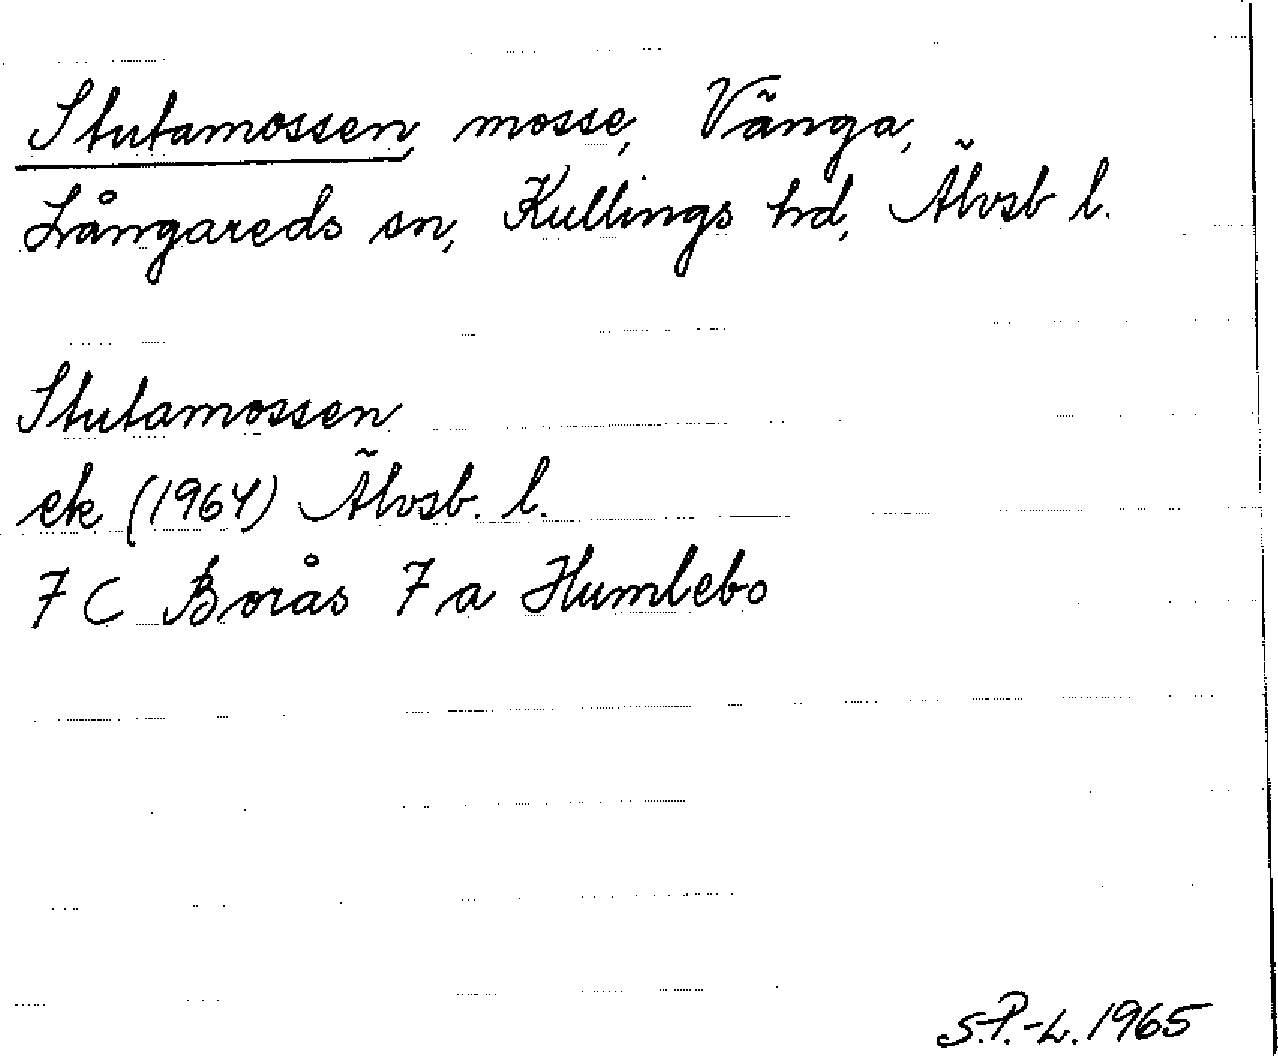 Stutamossen, mosse, Vänga,
Långareds sn, Kullings hd, Älvsb l.
Stutamossen
ek (1964) Älvsb. l.
7 C Borås 7 a Humlebo
S.P.-L. 1965